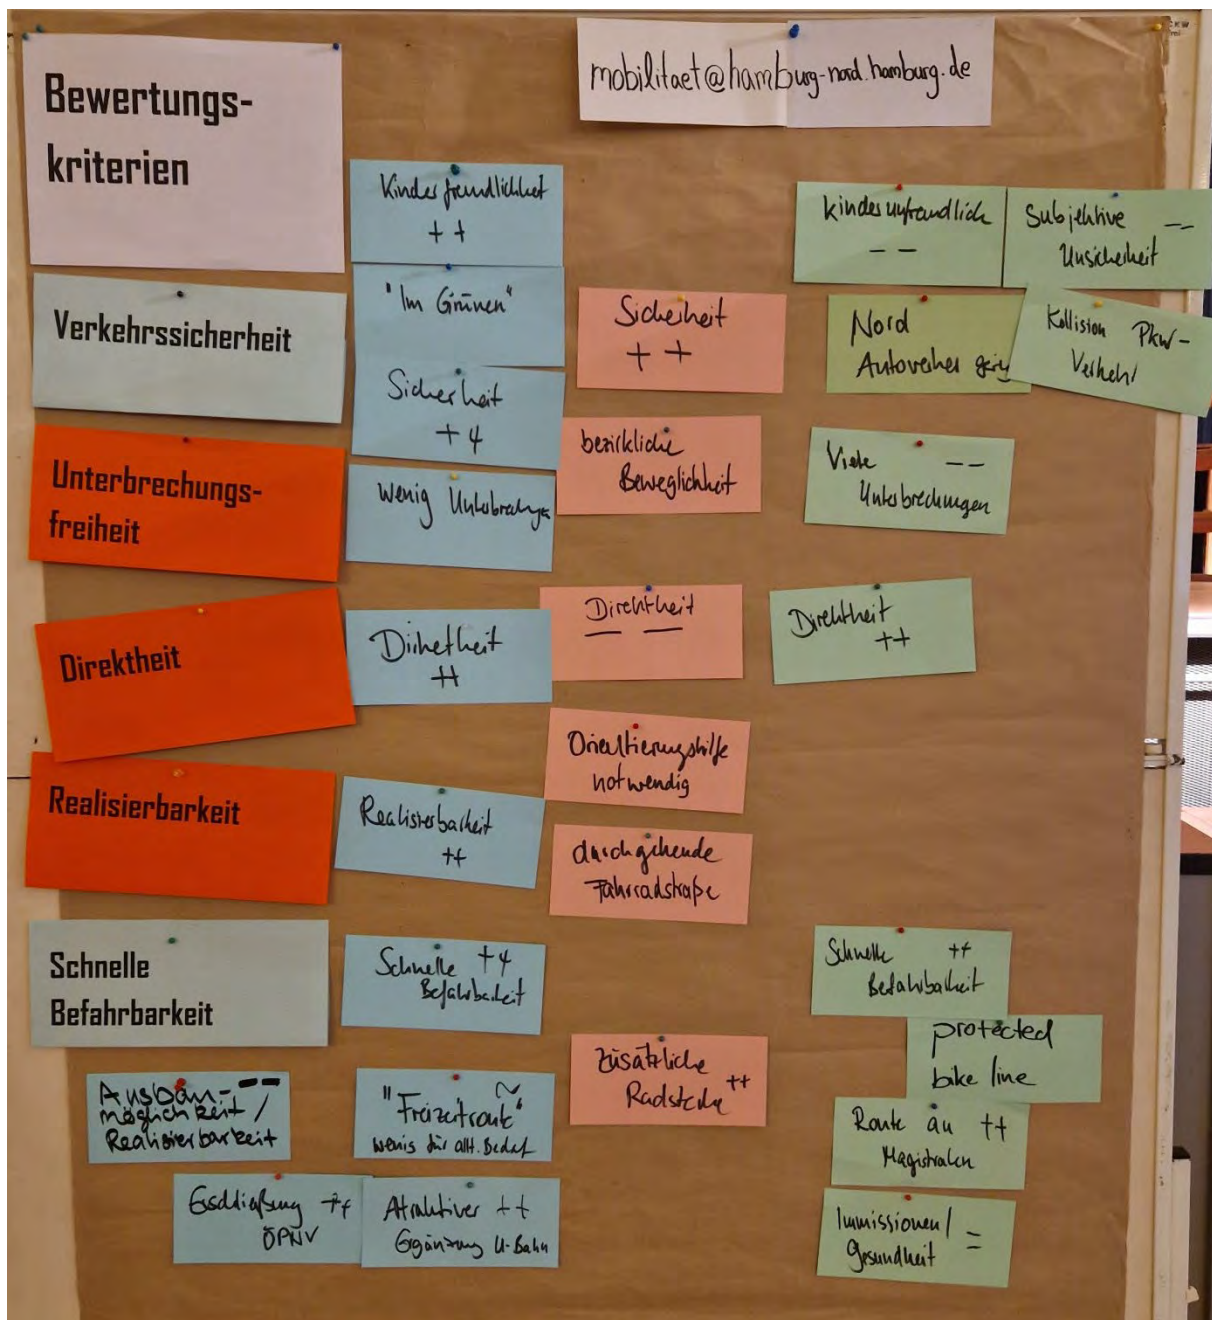 Bewertungs-
kriterien
mobilitaet@hamburg-nord.hamburg.de
Verkehrssicherheit
Unterbrechungs-
freiheit
Direktheit
Realisierbarkeit
Schnelle
Befahrbarkeit
Ausbau- --
möglichkeit /
Realisierbarkeit
Erschließung ++
ÖPNV
Kinderfreundlichkeit
++
"Im Grünen"
Sicherheit
++
Wenig Unterbrechungen
Direktheit
++
Realisierbarkeit
++
Schnelle ++
Befahrbarkeit
~
"Freizeitroute"
wenig für allt. Bedarf
Atraktiver ++
Ergänzung U-Bahn
Sicherheit
++
bezirkliche
Beweglichkeit
Direktheit
-- 
Orientierungshilfe
notwendig
durchgehende
Fahrradstraße
Zusätzliche
Radstrecke ++
kinderunfreundlich
--
Subjektive --
Unsicherheit
Nord
Autoverkehr
Kollision Pkw-
Verkehr
Viele --
Unterbrechungen
Direktheit
++
Schnelle ++
Befahrbarkeit
protected
bike line
Route an ++
Magistralen
Immissionen/
Gesundheit =